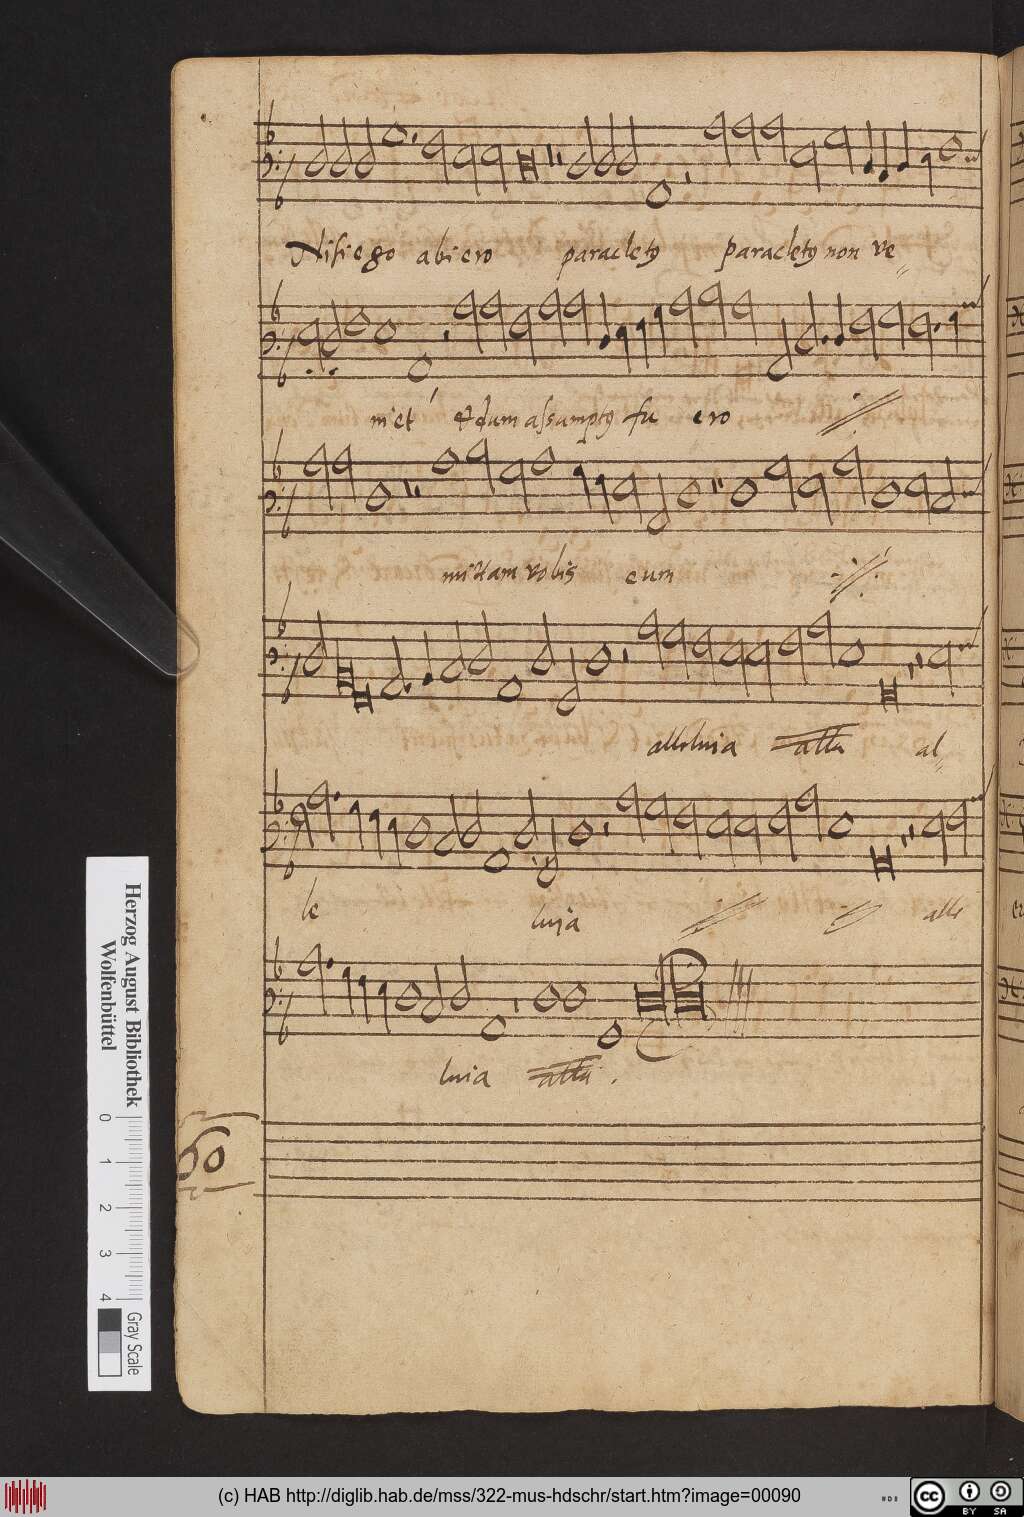 Nisi ego abiero paraclet9 paraclet9 non ve-
niet & dum assumpt9 fu ero
mittam vobis eum
alleluia alla al-
le luia alle
luia alla.
60
Herzog August Bibliothek
Wolfenbüttel
0 1 2 3 4
Gray Scale
(c) HAB http://diglib.hab.de/mss/322-mus-hdschr/start.htm?image=00090
cc BY SA